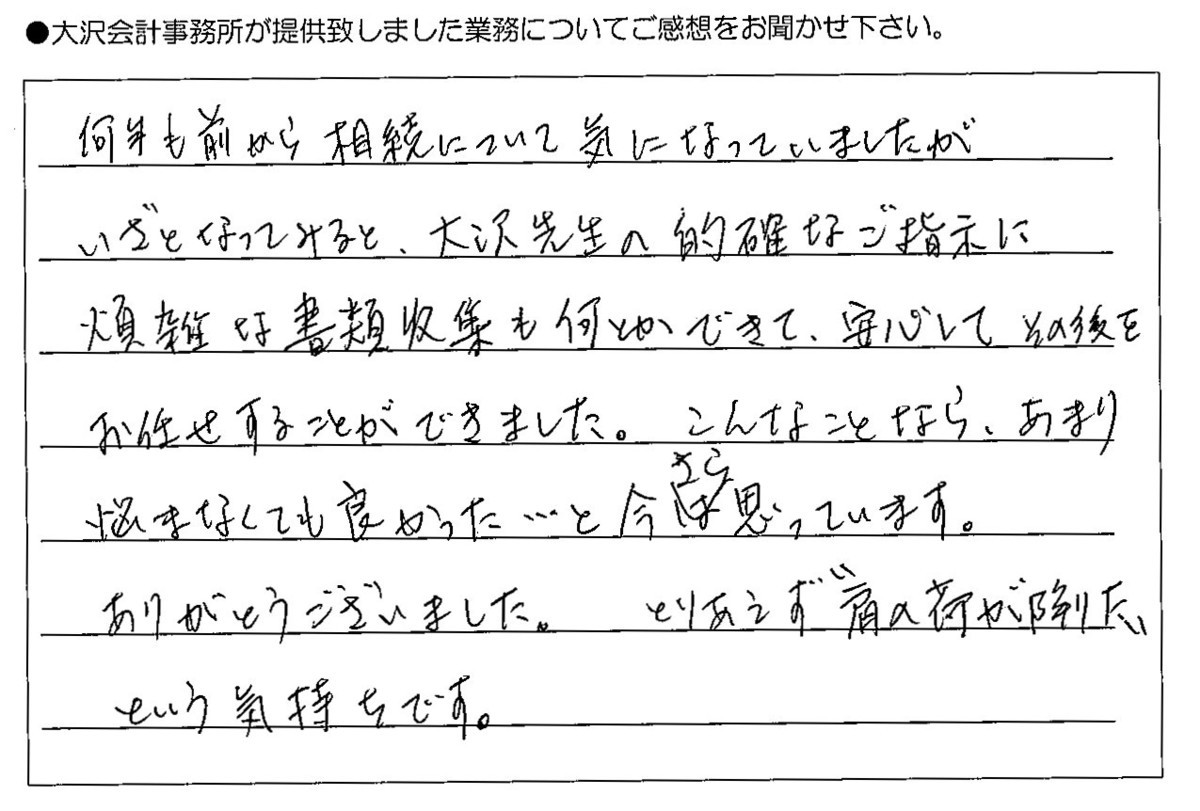 ●大沢会計事務所が提供致しました業務についてご感想をお聞かせ下さい。
何年も前から相続について気になっていましたが
いざとなってみると、大沢先生の的確なご指示に
煩雑な書類収集も何とかできて、安心してその後を
お任せすることができました。こんなことなら、あまり
さら
悩まなくても良かった…と今は思っています。
ありがとうございました。 とりあえず"肩の荷が降りた"
という気持ちです。